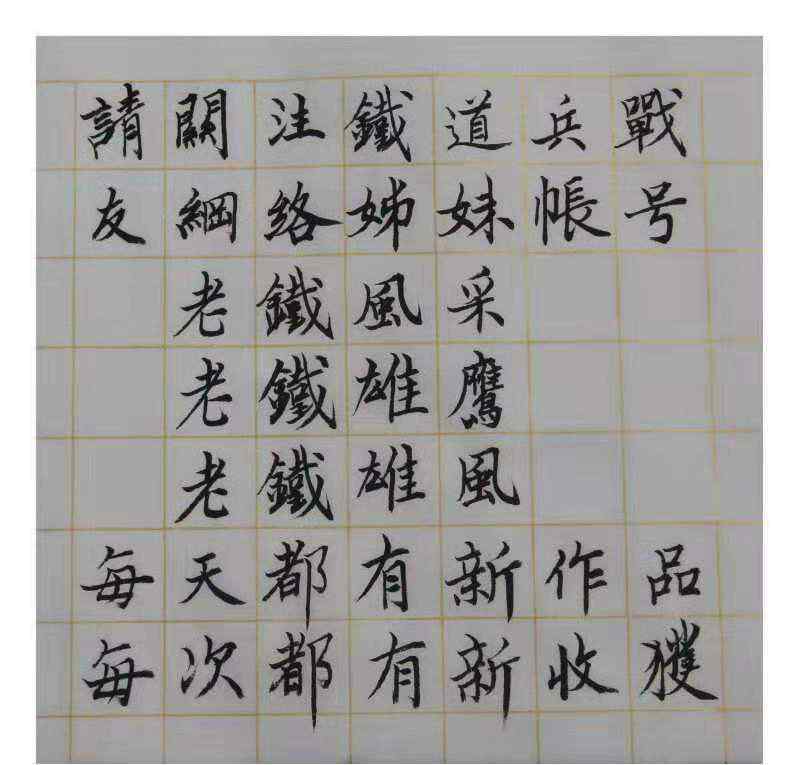 請關注鐵道兵戰
友網絡姊妹帳号
老鐵風采
老鐵雄鷹
老鐵雄風
每天都有新作品
每次都有新收獲